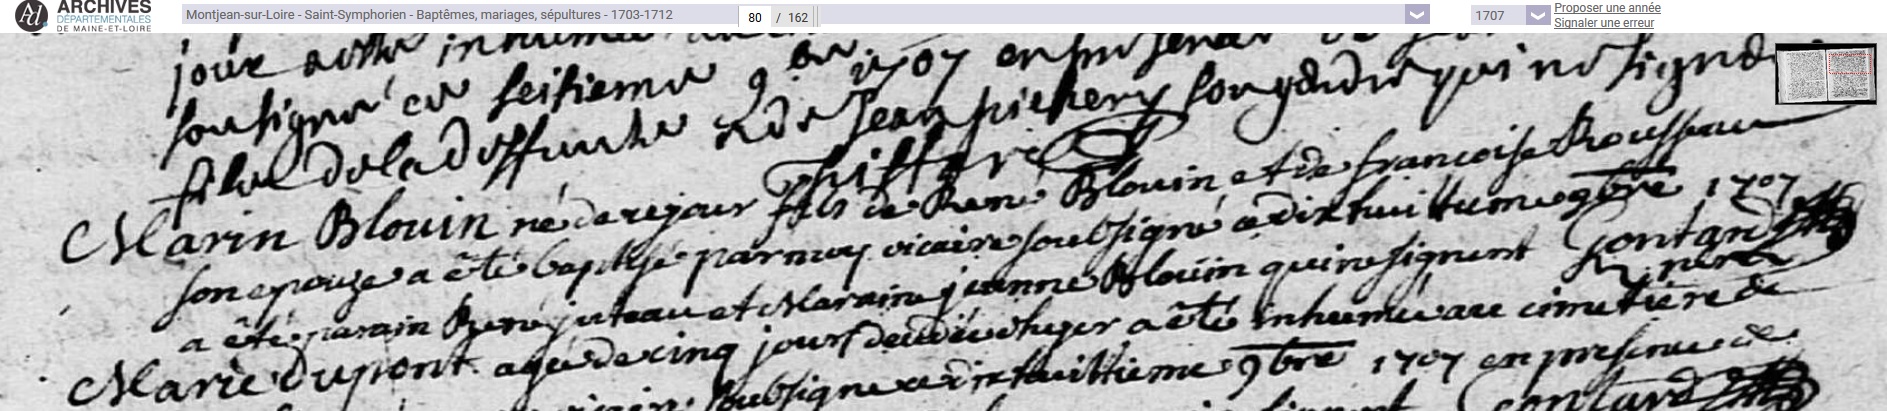 ARCHIVES
DÉPARTEMENTALES
DE MAINE-ET-LOIRE
Montjean-sur-Loire - Saint-Symphorien - Baptêmes, mariages, sépultures - 1703-1712
80 / 162
1707
Proposer une année
Signaler une erreur
jour a esté
soussigné ce seitieme 9bre 1707 en presence de
filz de la deffunte et de Jean pichery son gendre qui ne signe
Marin Blouin né de ce jour fils de René Blouin et de francoise Rousseau
son epouze a été baptisé par moy vicaire soubsigné ce dixhuittieme 9bre 1707
a été parain René juteau et Maraine jeanne Blouin qui ne signent Gontard
Marie Dupont agée de cinq jours a été inhumée au cimetiere de
soubsigné ce dixhuittieme 9bre 1707 en presence de
signent Gontard